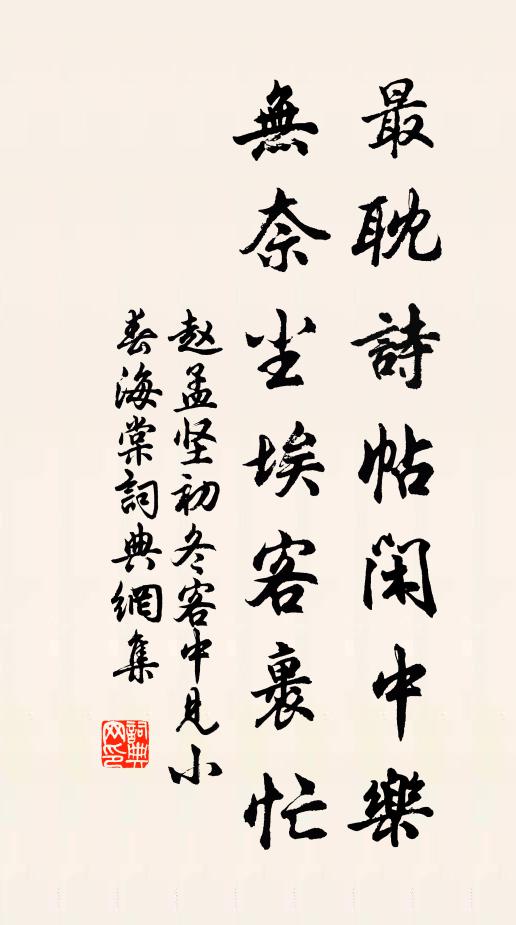 最耽詩帖閑中樂
無奈尘埃客裹忙
赵孟坚初冬客中見小
春海棠詞典網集
詞典网印